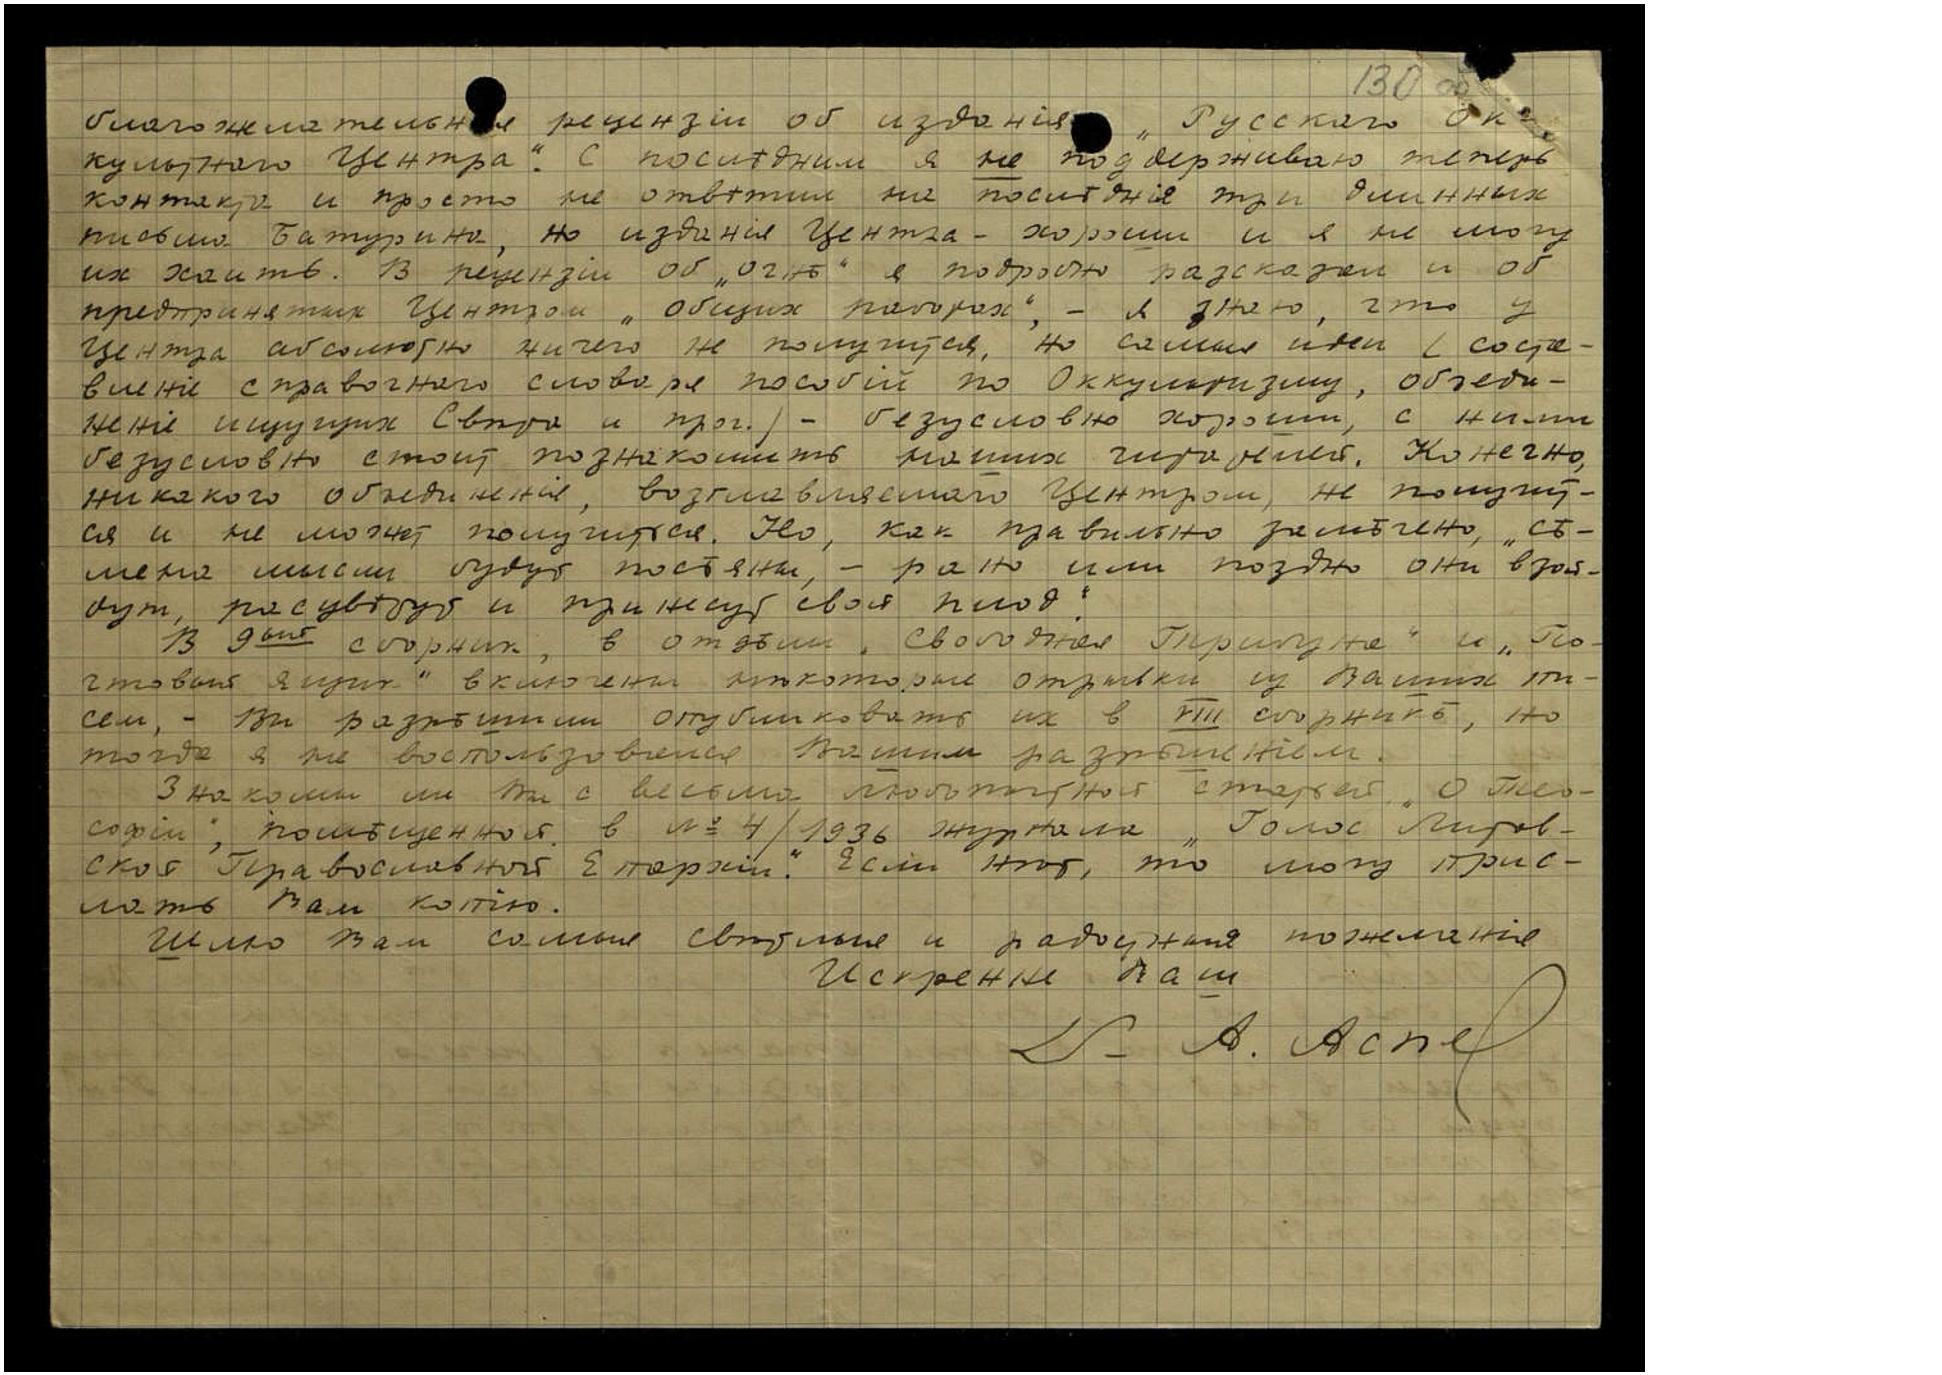 130 об
благожелательныя рецензіи об изданіях „Русскаго Ок-
культнаго Центра“. С послѣдним я не поддерживаю теперь
контакта и просто не отвѣтил на послѣднія три длинных
письма Батурина, но изданія Центра – хороши и я не могу
их хаить. В рецензіи об „Огнѣ“ я подробно разсказал и об
предпринятых Центром „общих работах“, – я знаю, что у
Центра абсолютно ничего не получится, но самыя идеи (соста-
вленіе справочнаго словаря пособій по Оккультизму, объеди-
неніе ищущих Свѣта и проч.) – безусловно хороши, с ними
безусловно стоит познакомить наших читателей. Конечно,
никакого объединенія, возглавляемаго Центром, не получит-
ся и не может получиться. Но, как правильно замѣчено, „сѣ-
мена мысли будут посѣяны, – рано или поздно они взой-
дут, расцвѣтут и принесут свой плод“.
В 9ый сборник, в отдѣлы „Свободная Трибуна“ и „По-
чтовый ящик“ включены нѣкоторые отрывки из Ваших пи-
сем, – Вы разрѣшили опубликовать их в VIII сборникѣ, но
тогда я не воспользовался Вашим разрѣшеніем.
Знакомы ли Вы с весьма любопытной статьей „О Тео-
софіи“, помѣщенной в № 4/1936 журнала „Голос Литов-
ской Православной Епархіи“. Если нѣт, то могу прис-
лать Вам копію.
Шлю Вам самыя свѣтлыя и радостныя пожеланія
Искренне Ваш
Dr А. Аспе